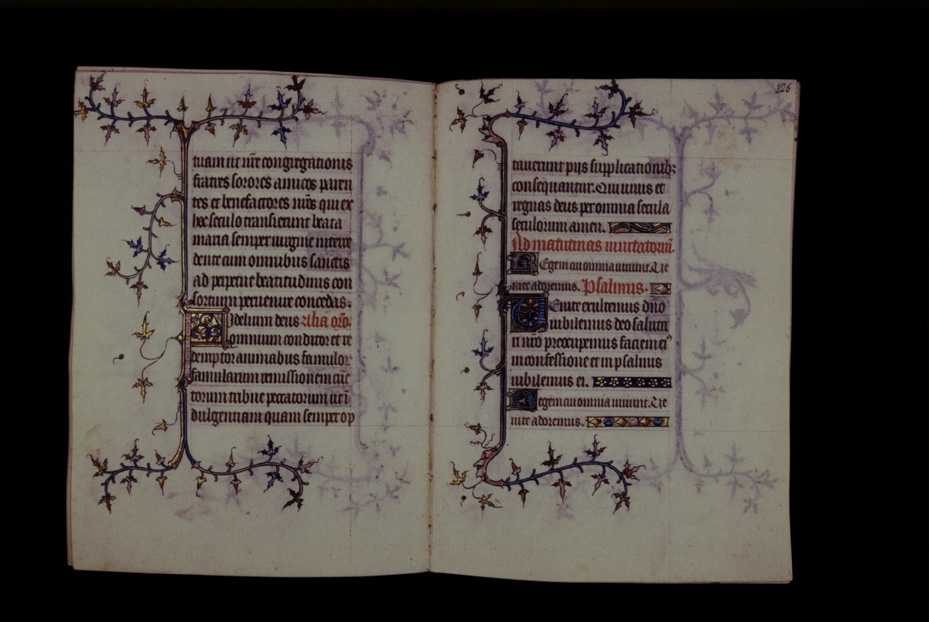 tuam ut nr̄e congregationis
fratres sorores amicos paren
tes et benefactores nr̄os qui ex
hoc seculo transierunt beata
maria semper uirgine interce
dente cum omnibus sanctis
ad perpetue beatitudinis con
sortium peruenire concedas.
Fidelium deus Alia or̄o.
omnium conditor et re
demptor animabus famulor
famularum remissionem cūc
torum tribue peccatorum ut i
dulgentiam quam semper op
126
tauerunt pijs supplicationib;
consequantur. Qui uiuis et
regnas deus per omnia secula
seculorum amen.
Ad matutinas mortuorū.
Regem cui omnia uiuunt. Ue
nite adoremus. Psalmus.
Uenite exultemus dn̄o
iubilemus deo saluta
ri nr̄o preoccupemus faciem ei9
in confessione et in psalmis
iubilemus ei.
Regem cui omnia uiuunt. Ue
nite adoremus.